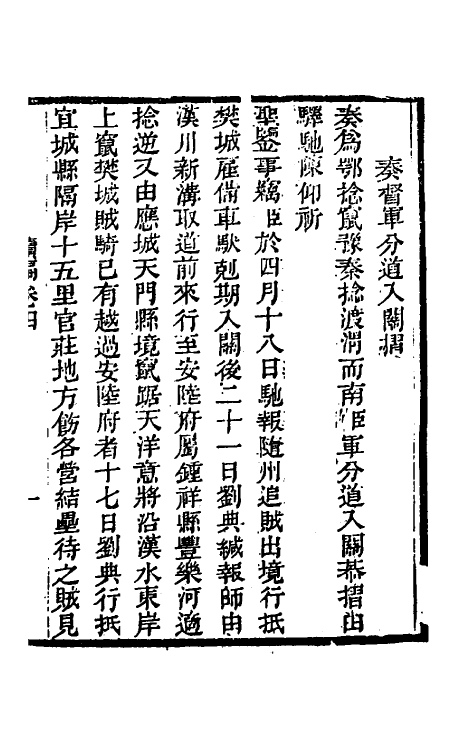 奏督軍分道入關摺
奏爲鄂捻竄豫秦捻渡渭而南臣軍分道入關恭摺由
驛馳陳仰祈
聖鑒事竊臣於四月十八日馳報隨州追賊出境行抵
樊城雇備車馱剋期入關後二十一日劉典緘報師由
漢川新溝取道前來行至安陸府屬鍾祥縣豐樂河適
捻逆又由應城天門縣境竄踞天洋意將沿漢水東岸
上竄樊城賊騎已有越過安陸府者十七日劉典行抵
宜城縣隔岸十五里官莊地方飭各營結壘待之賊見
卷四
一